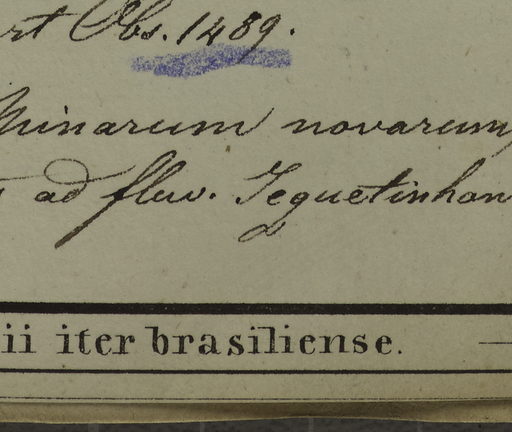 rt Obs. 1489.
Minarum novarum
ad fluv. Jequetinhon
ii iter brasiliense.